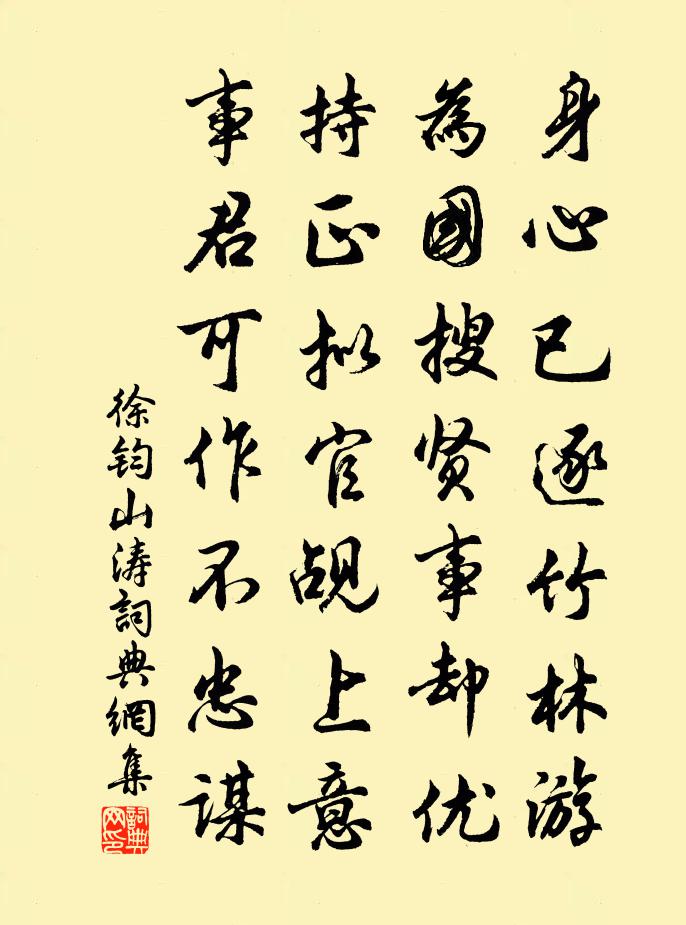 身心已逐竹林游
為國搜贤事却优
持正拟官觇上意
事君可作不忠谋
徐鈞山涛詞典網集
詞典
网印